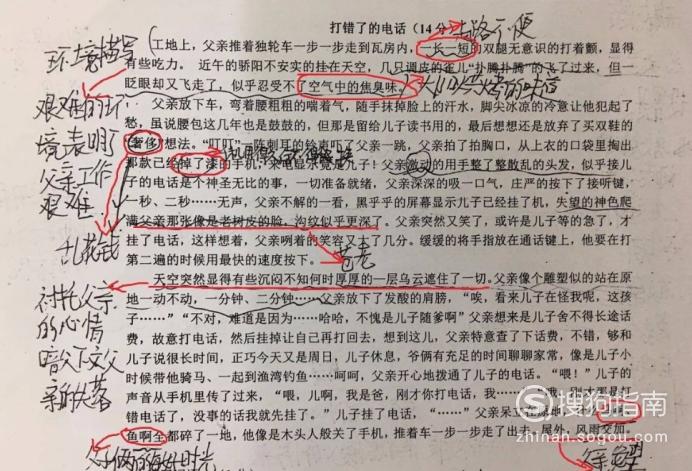 打错了的电话（14分）
走路不便
工地上，父亲推着独轮车一步一步走到瓦房内，一长一短的双腿无意识的打着颤，显得
有些吃力。 近午的骄阳不安实的挂在天空，几只调皮的雀儿“扑腾扑腾”的飞了过来，但一
眨眼却又飞走了，似乎忍受不了空气中的焦臭味。
父亲放下车，弯着腰粗粗的喘着气，随手抹掉脸上的汗水，脚尖冰凉的冷意让他犯起了
愁，虽说腰包这几年也是鼓鼓的，但那是留给儿子读书用的，最后想想还是放弃了买双鞋的
(奢侈)想法。“叮叮”一阵刺耳的铃声吓了父亲一跳，父亲拍了拍胸口，从上衣的口袋里掏出
那款已经掉了漆的手机，来电显示竟是儿子！父亲激动的用手整了整散乱的头发，似乎接儿
子的电话是个神圣无比的事，一切准备就绪，父亲深深的吸一口气，庄严的按下了接听键，
一秒、二秒……无声，父亲不解的一看，黑乎乎的屏幕显示儿子已经挂了机，失望的神色爬
满父亲那张像是老树皮的脸，沟纹似乎更深了。父亲突然又笑了，或许是儿子等的急了，才
挂了电话，这样想着，父亲咧着的笑容又大了几分。缓缓的将手指放在通话键上，他要在打
第二遍的时候用最快的速度按下。
苍老
天空突然显得有些沉闷不知何时厚厚的一层乌云遮住了一切。父亲像个雕塑似的站在原
地一动不动，一分钟、二分钟……父亲放下了发酸的肩膀，“唉，看来儿子在怪我呢，这孩
子……” “不对，难道是因为……哈哈，不愧是我儿子随爹啊”父亲想来是儿子舍不得长途话
费，故意打电话，然后挂掉让自己再打回去，想到这儿，父亲特意查了下话费，不错，够和
儿子说很长时间，正巧今天又是周日，儿子休息，爷俩有充足的时间聊聊家常，像是儿子小
时候带他骑马、一起到渔湾钓鱼……呵呵，父亲开心地拨通了儿子的电话。 “喂！”儿子的
声音从手机里传了过来，“喂，儿啊，我是爸，刚才你打电话
错电话了，没事的话我就先挂了。”儿子挂了电话，“……”父亲呆立在原地
鱼啊全都碎了一地，他像是木头人般关了手机，推着车一步一步走了出去，屋外，风雨交加。
环境描写
艰难的环
境表明了
父亲工作
艰难
乱花钱
衬托父亲
的心情
暗示下文父
亲的失落
搜狗指南
zhinan.sogou.com